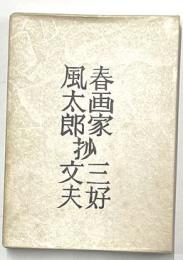 春画家
風太郎抄
三好文夫